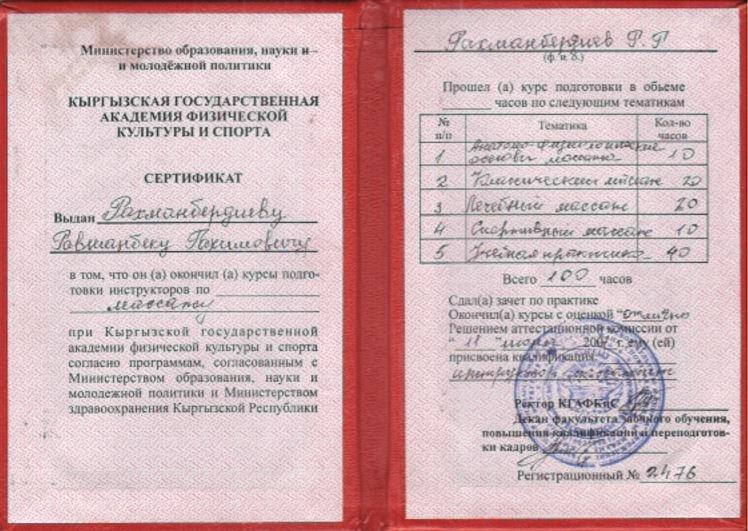 Министерство образования, науки и
и молодёжной политики
КЫРГЫЗСКАЯ ГОСУДАРСТВЕННАЯ
АКАДЕМИЯ ФИЗИЧЕСКОЙ
КУЛЬТУРЫ И СПОРТА
СЕРТИФИКАТ
Выдан Рахманбердиеву
Равшанбеку Рахимовичу
в том, что он (а) окончил (а) курсы подго-
товки инструкторов по
массажу
при Кыргызской государственной
академии физической культуры и спорта
согласно программам, согласованным с
Министерством образования, науки и
молодежной политики и Министерством
здравоохранения Кыргызской Республики
Рахманбердиев Р.Р
(ф. и. о.)
Прошел (а) курс подготовки в обьеме
часов по следующим тематикам
№ п/п Тематика Кол-во часов
1 Анатомо-физиологические основы массажа 10
2 Классический массаж 20
3 Лечебный массаж 20
4 Спортивный массаж 10
5 Учебная практика 40
Всего 100 часов
Сдал(а) зачет по практике
Окончил(а) курсы с оценкой "отлично
Решением аттестационной комиссии от
"18 " марта 200 г. ему (ей)
присвоена квалификация
инструктор
Ректор КГАФКиС
Декан факультета заочного обучения,
повышения квалификации и переподготов-
ки кадров
Регистрационный № 2476